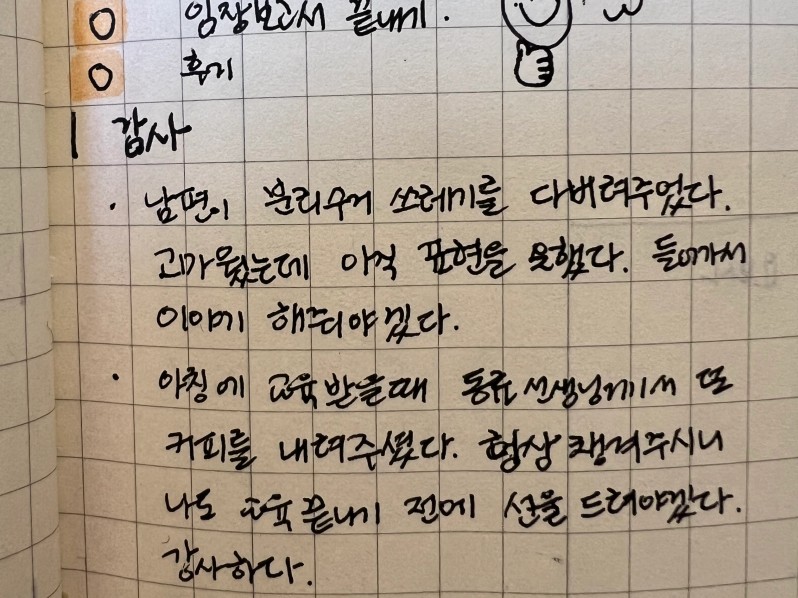 임장보고서 끝내기.
후기
감사
· 남편이 분리수거 쓰레기를 다버려주었다.
고마웠는데 아직 표현을 못했다. 들어가서
이야기 해줘야겠다.
· 아침에 교육 받을때 동료 선생님께서 또
커피를 내려주셨다. 항상 챙겨주시니
나도 교육 끝내기 전에 선물 드려야겠다.
감사하다.